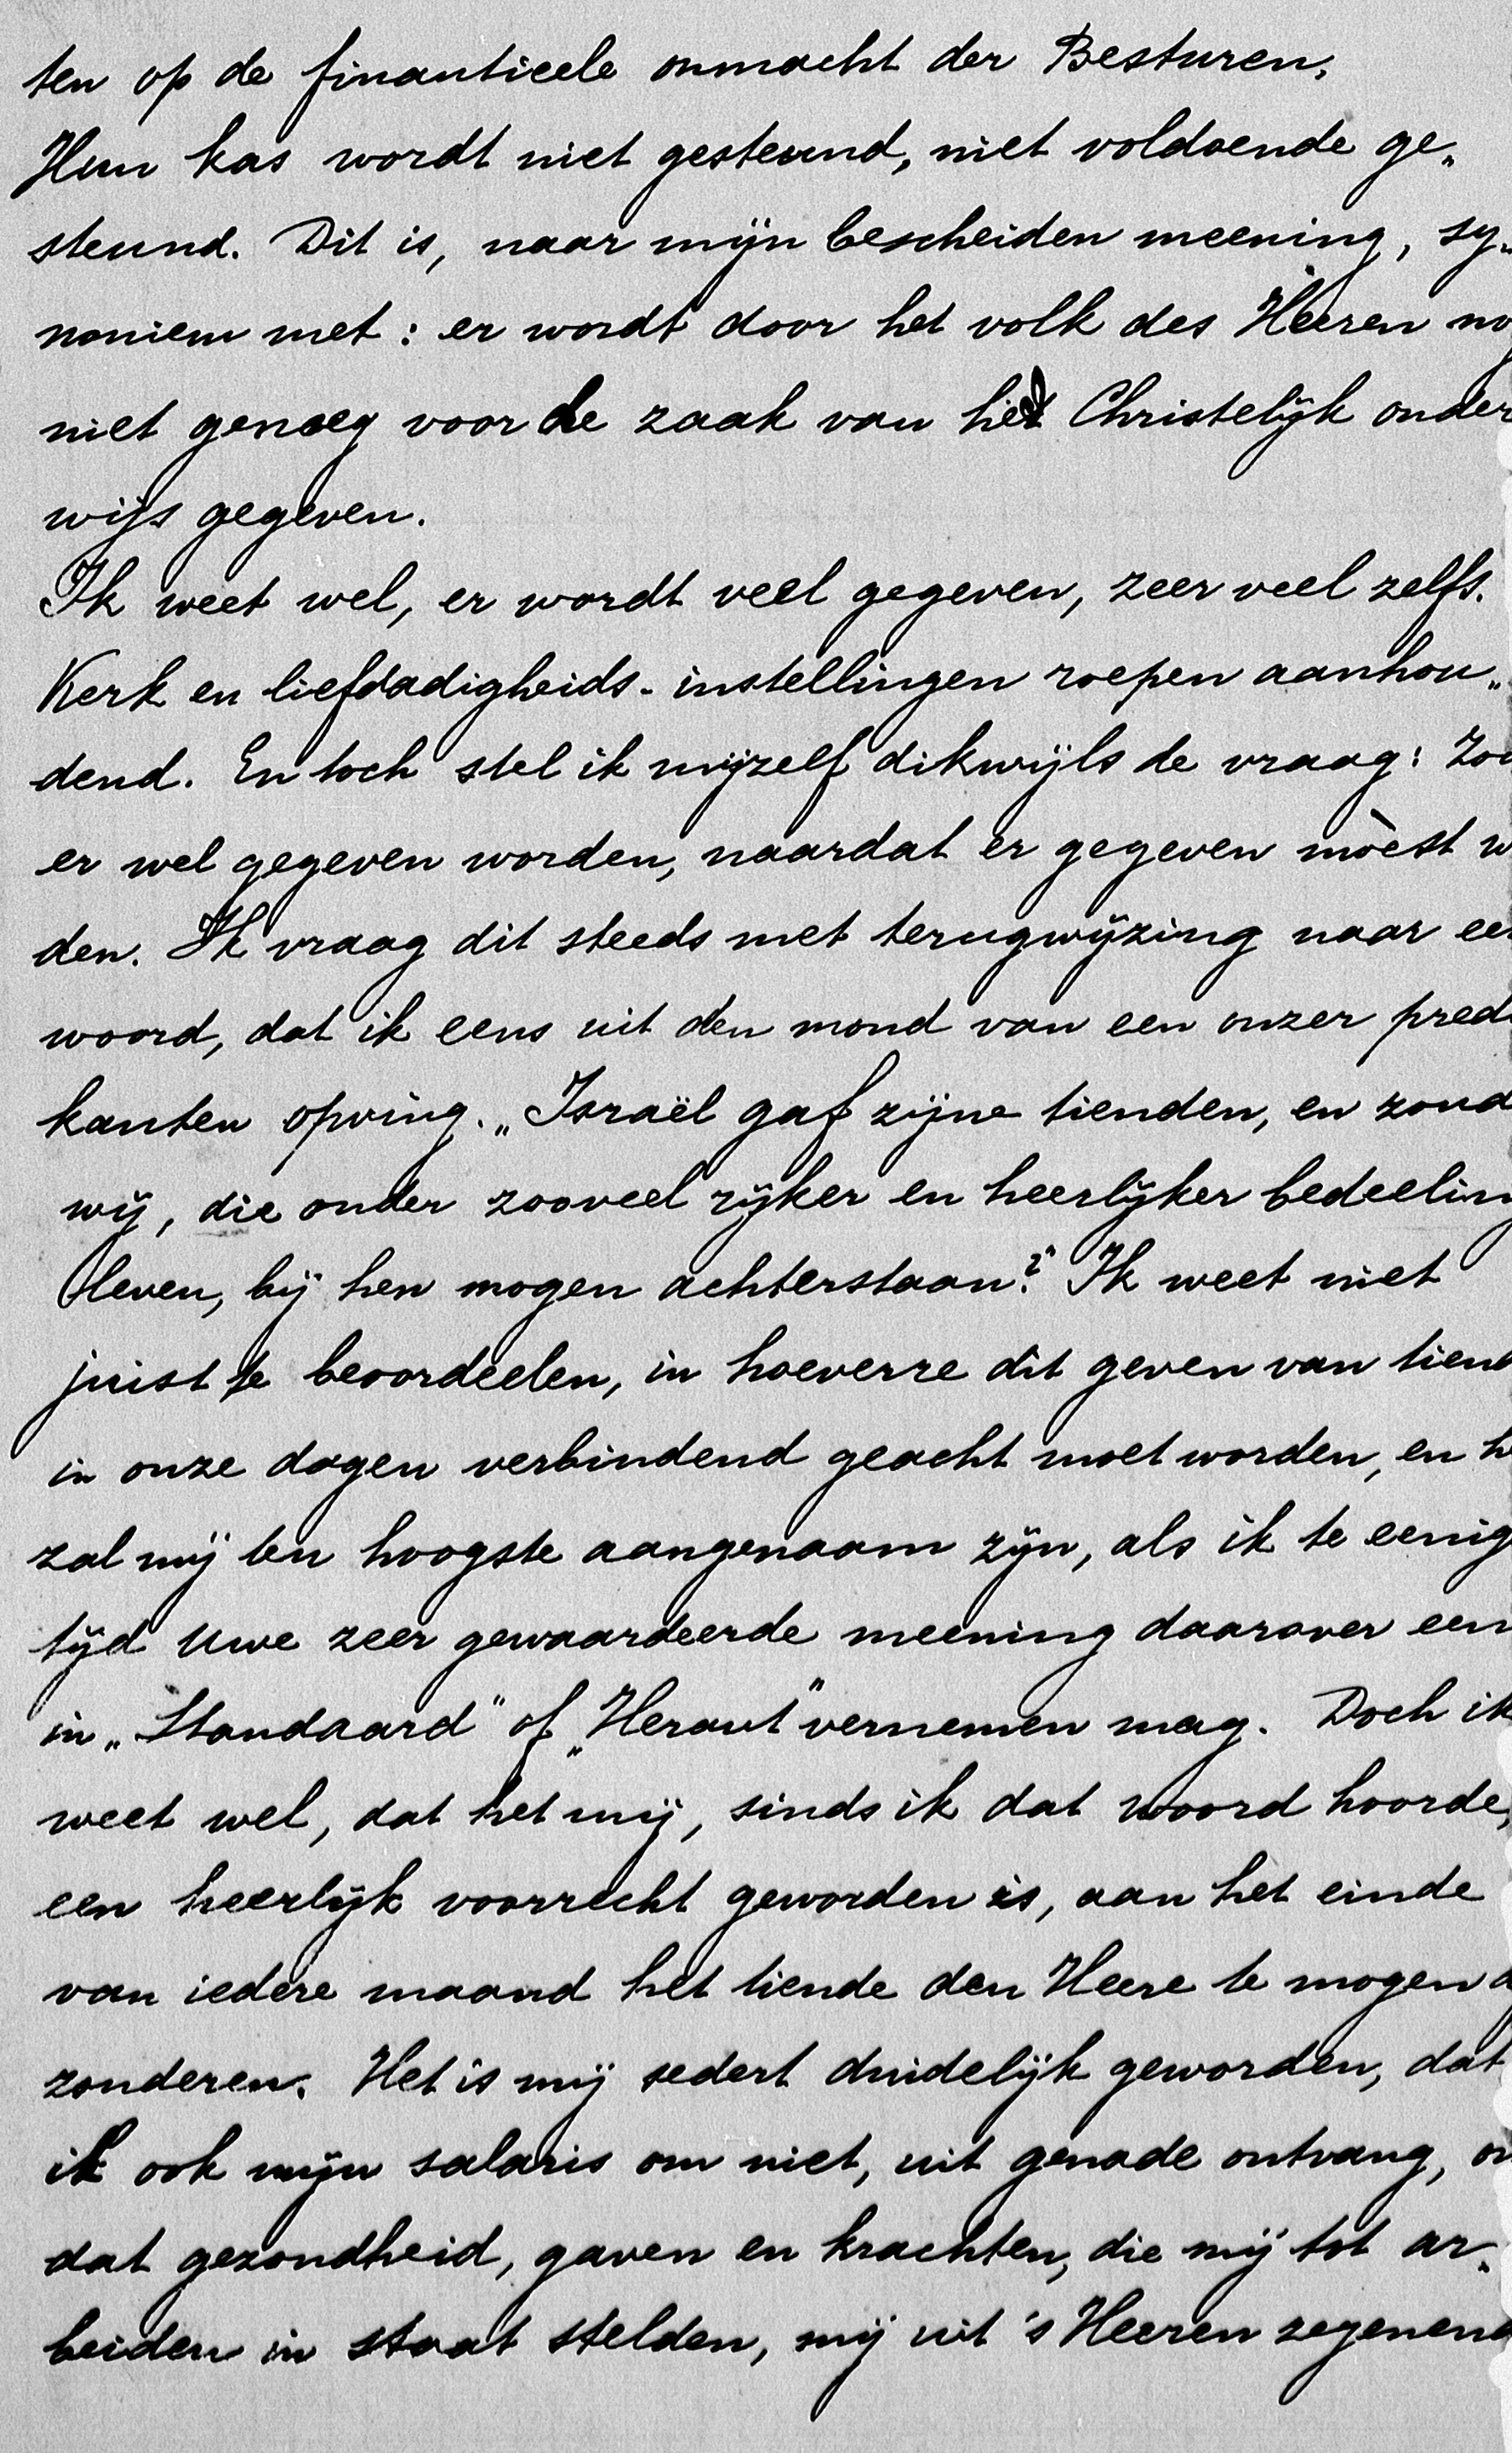 ten op de finantieele onmacht der Besturen.
Hun kas wordt niet gesteund, niet voldoende ge„
steund. Dit is, naar mijn bescheiden meening, sy„
noniem met: er wordt door het volk des Heeren no
niet genoeg voor de zaak van het Christelijk onder
wijs gegeven.
Ik weet wel, er wordt veel gegeven, zeer veel zelfs.
Kerk en liefdadigheids-instellingen roepen aanhou„
dend. En toch stel ik mijzelf dikwijls de vraag: Zou
er wel gegeven worden, naardat er gegeven mòest w
den. Ik vraag dit steeds met terugwijzing naar een
woord, dat ik eens uit den mond van een onzer predi
kanten opving. „Israël gaf zijne tienden, en zoud
wij, die onder zooveel rijker en heerlijker bedeeling
leven, bij hen mogen achterstaan?" Ik weet niet
juist te beoordeelen, in hoeverre dit geven van tiend
in onze dagen verbindend geacht moet worden, en h
zal mij ten hoogste aangenaam zijn, als ik te eenig
tijd Uwe zeer gewaardeerde meening daarover een
in „Standaard" of „Heraut" vernemen mag. Doch ik
weet wel, dat het mij, sinds ik dat woord hoorde,
een heerlijk voorrecht geworden is, aan het einde
van iedere maand het tiende den Heere te mogen a
zonderen. Het is mij sedert duidelijk geworden, dat
ik ook mijn salaris om niet, uit genade ontvang, om
dat gezondheid, gaven en krachten, die mij tot ar„
beiden in staat stelden, mij uit 's Heeren zegenend